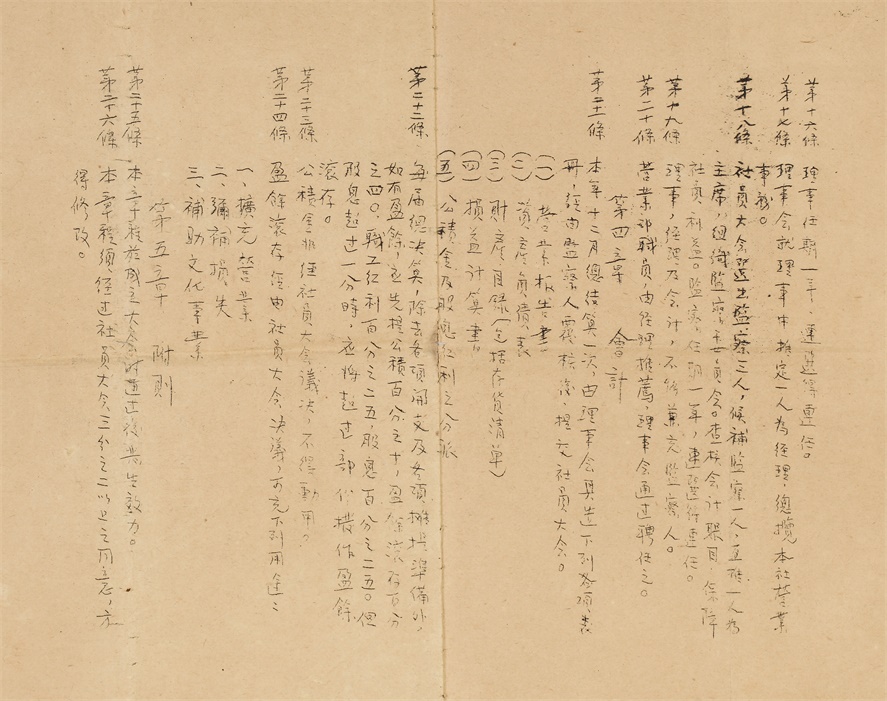 第十六條 理事任期一年，連選得連任。
第十七條 理事会就理事中推定一人為経理，總攬本社营業
事務。
第十八條 社員大会選出監察三人，候補監察一人，互推一人為
主席，組織監察委員会。查核会計賬目，保障
社員利益。監察任期一年，連選得連任。
第十九條 理事，経理及会計，不能兼充監察人。
第二十條 营業部職員，由経理推薦，理事会通过聘任之。
第四章 會計
第廿一條 本年十二月總结算一次，由理事会具造下列各項表
冊，経由監察人覆核後，提充社員大会。
（一）营業报告書。
（二）資產負債表
（三）財產目録（包括存貨清單）
（四）損益計算書。
（五）公積金及股息红利之分派
第二十二條 每届總决算，除去各項開支及各項撥提準備外，
如有盈餘，应先提公積百分之十，盈餘滾存百分
之四〇，職工红利百分之二五，股息百分之二五。但
股息超过一分時，应将超过部份撥作盈餘
滾存。
第二十三條 公積金非経社員大会議决，不得動用。
第二十四條 盈餘滾存経由社員大会决議，可充下列用途：
一、擴充营業
二、彌補損失
三、補助文化事業
第五章 附則
第二十五條 本章程於成立大会時通过後発生效力。
第二十六條 本章程須経过社員大会三分之二以上之同意，方
得修改。